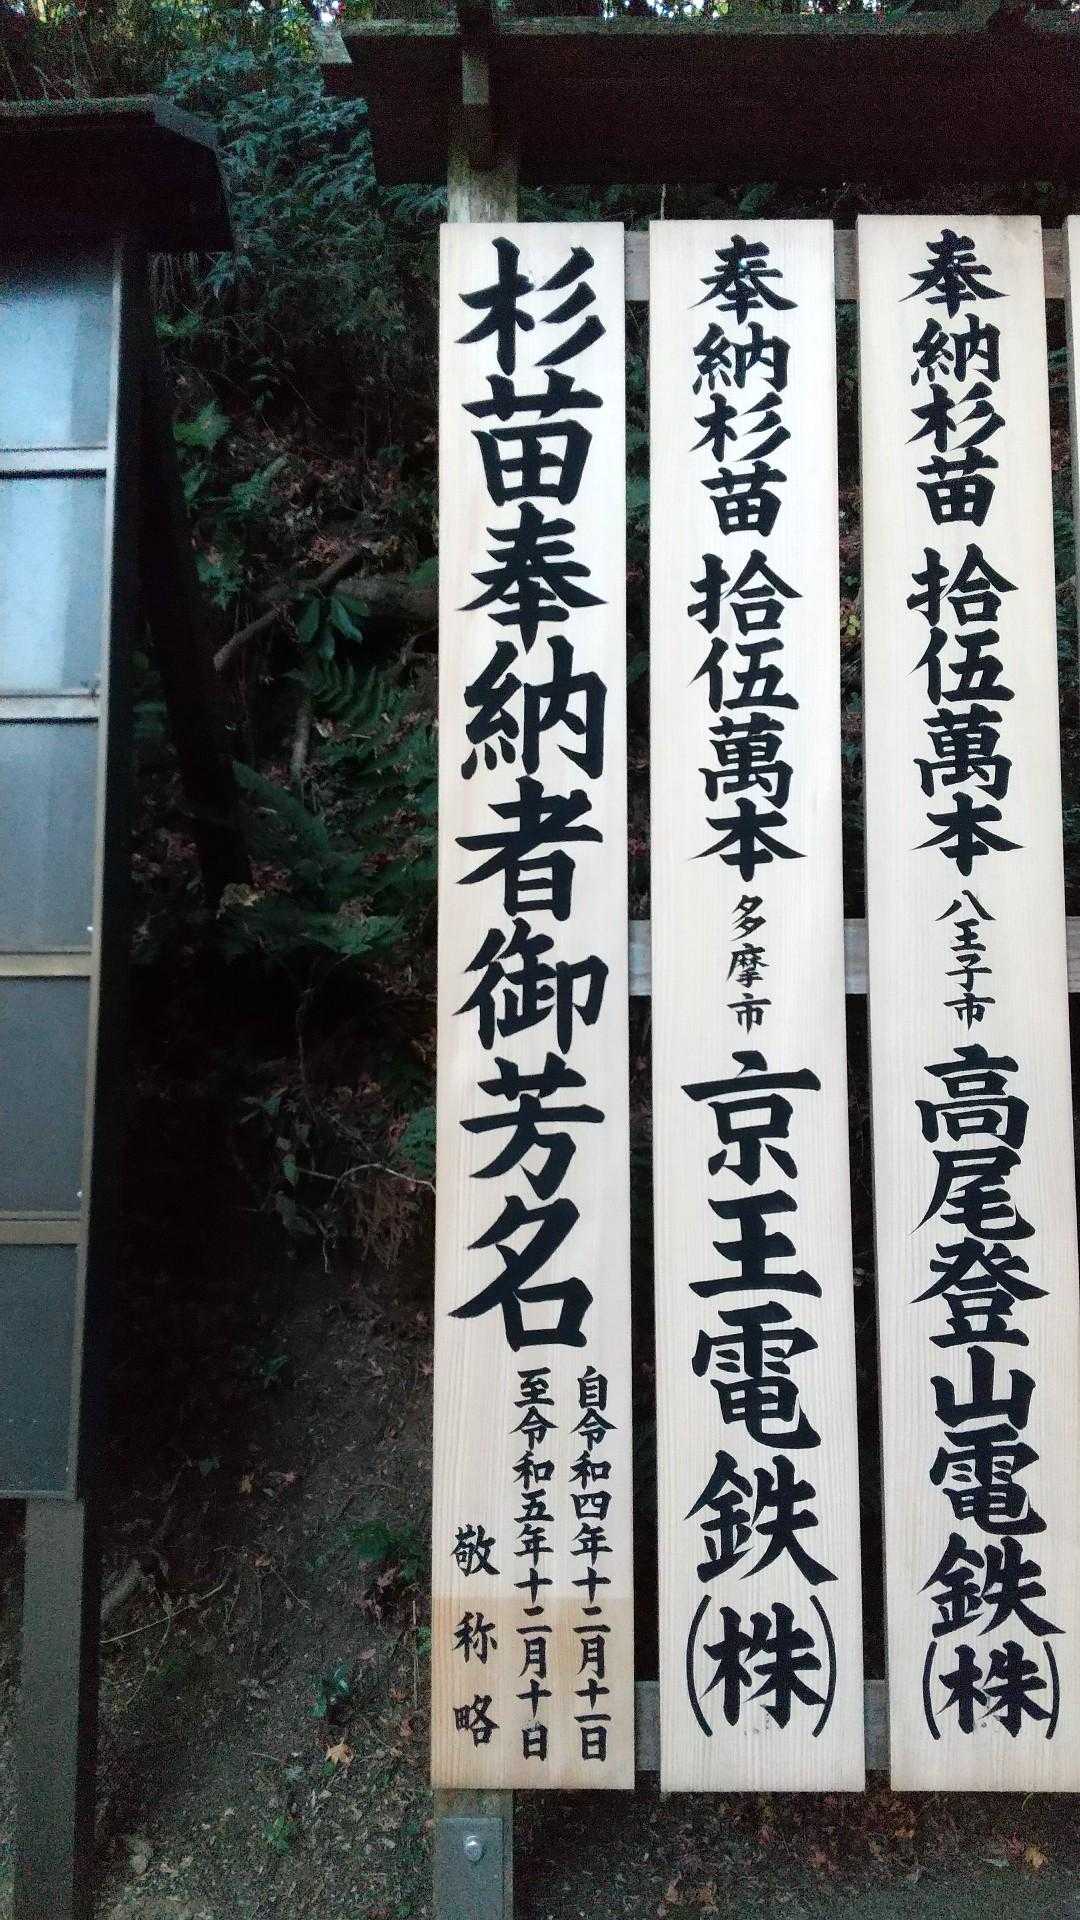 奉納杉苗 拾伍萬本 八王子市 高尾登山電鉄(株)
奉納杉苗 拾伍萬本 多摩市 京王電鉄(株)
杉苗奉納者御芳名
自令和四年十二月十一日
至令和五年十二月十日
敬称略